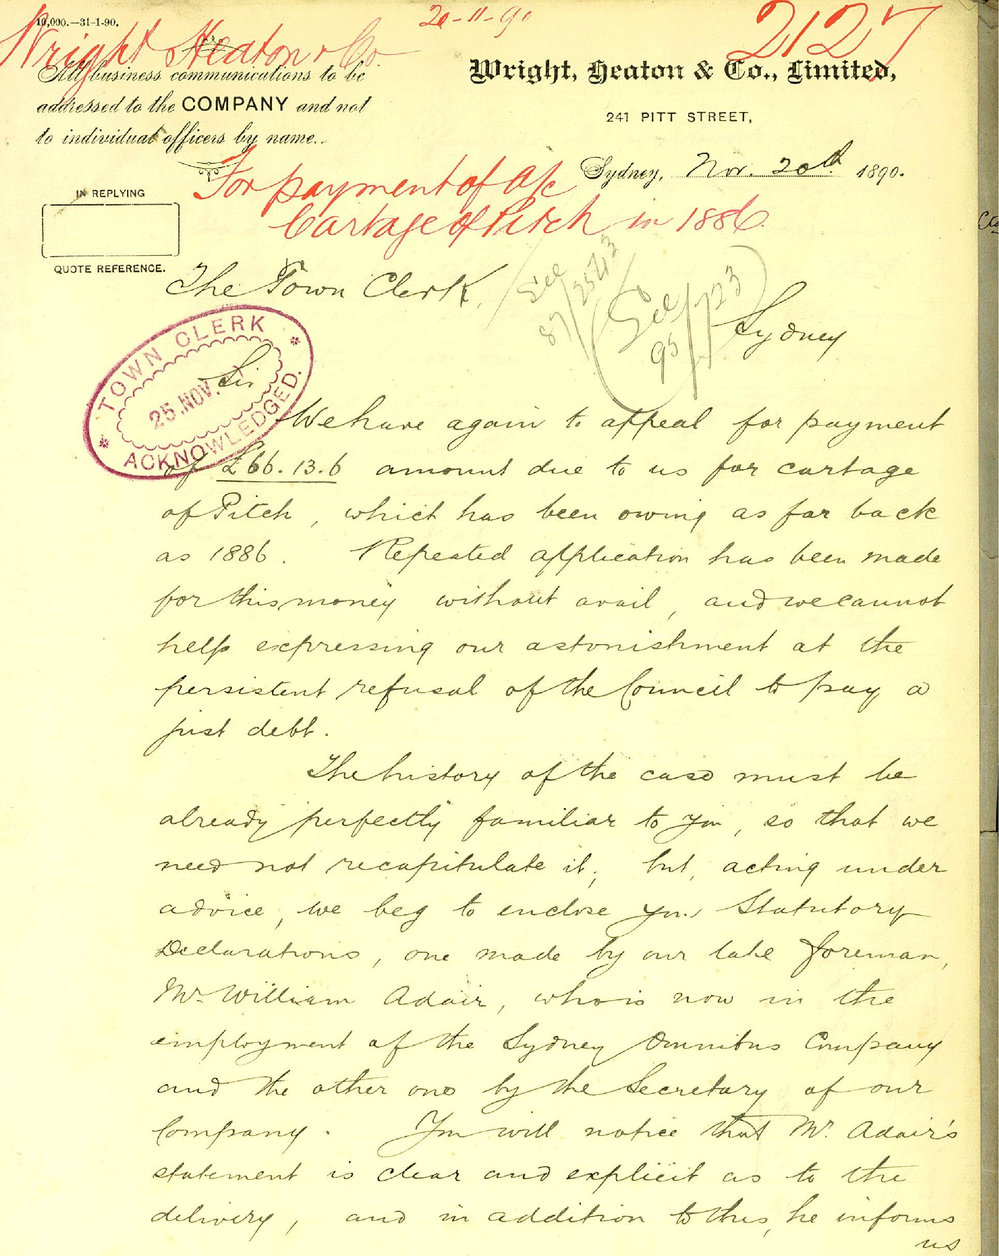 10,000.—31-1-90.
20-11-90
2127
Wright Heaton & Co.
All business communications to be
addressed to the COMPANY and not
to individual officers by name.
Wright, Heaton & Co., Limited,
241 PITT STREET,
Sydney, Nov. 20th 1890.
For payment of a/c
Cartage of Pitch in 1886.
IN REPLYING
QUOTE REFERENCE.
The Town Clerk,
Sydney
TOWN CLERK
25 NOV.
ACKNOWLEDGED.
Sir
We have again to appeal for payment
of £66.13.6 amount due to us for cartage
of Pitch, which has been owing as far back
as 1886. Repeated application has been made
for this money without avail, and we cannot
help expressing our astonishment at the
persistent refusal of the Council to pay a
just debt.
The history of the case must be
already perfectly familiar to you, so that we
need not recapitulate it; but, acting under
advice, we beg to enclose you Statutory
Declarations, one made by our late foreman,
Mr. William Adair, who is now in the
employment of the Sydney Omnibus Company
and the other one by the Secretary of our
Company. You will notice that Mr. Adair's
statement is clear and explicit as to the
delivery, and in addition to this, he informs
us